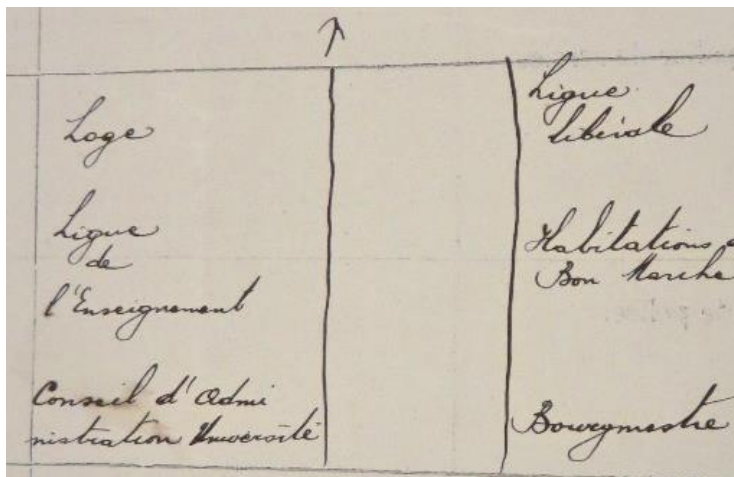 Loge
Ligue
de
l'Enseignement
Conseil d'Admi
nistration Université
Ligue
Libérale
Habitations à
Bon Marche
Bourgmestre